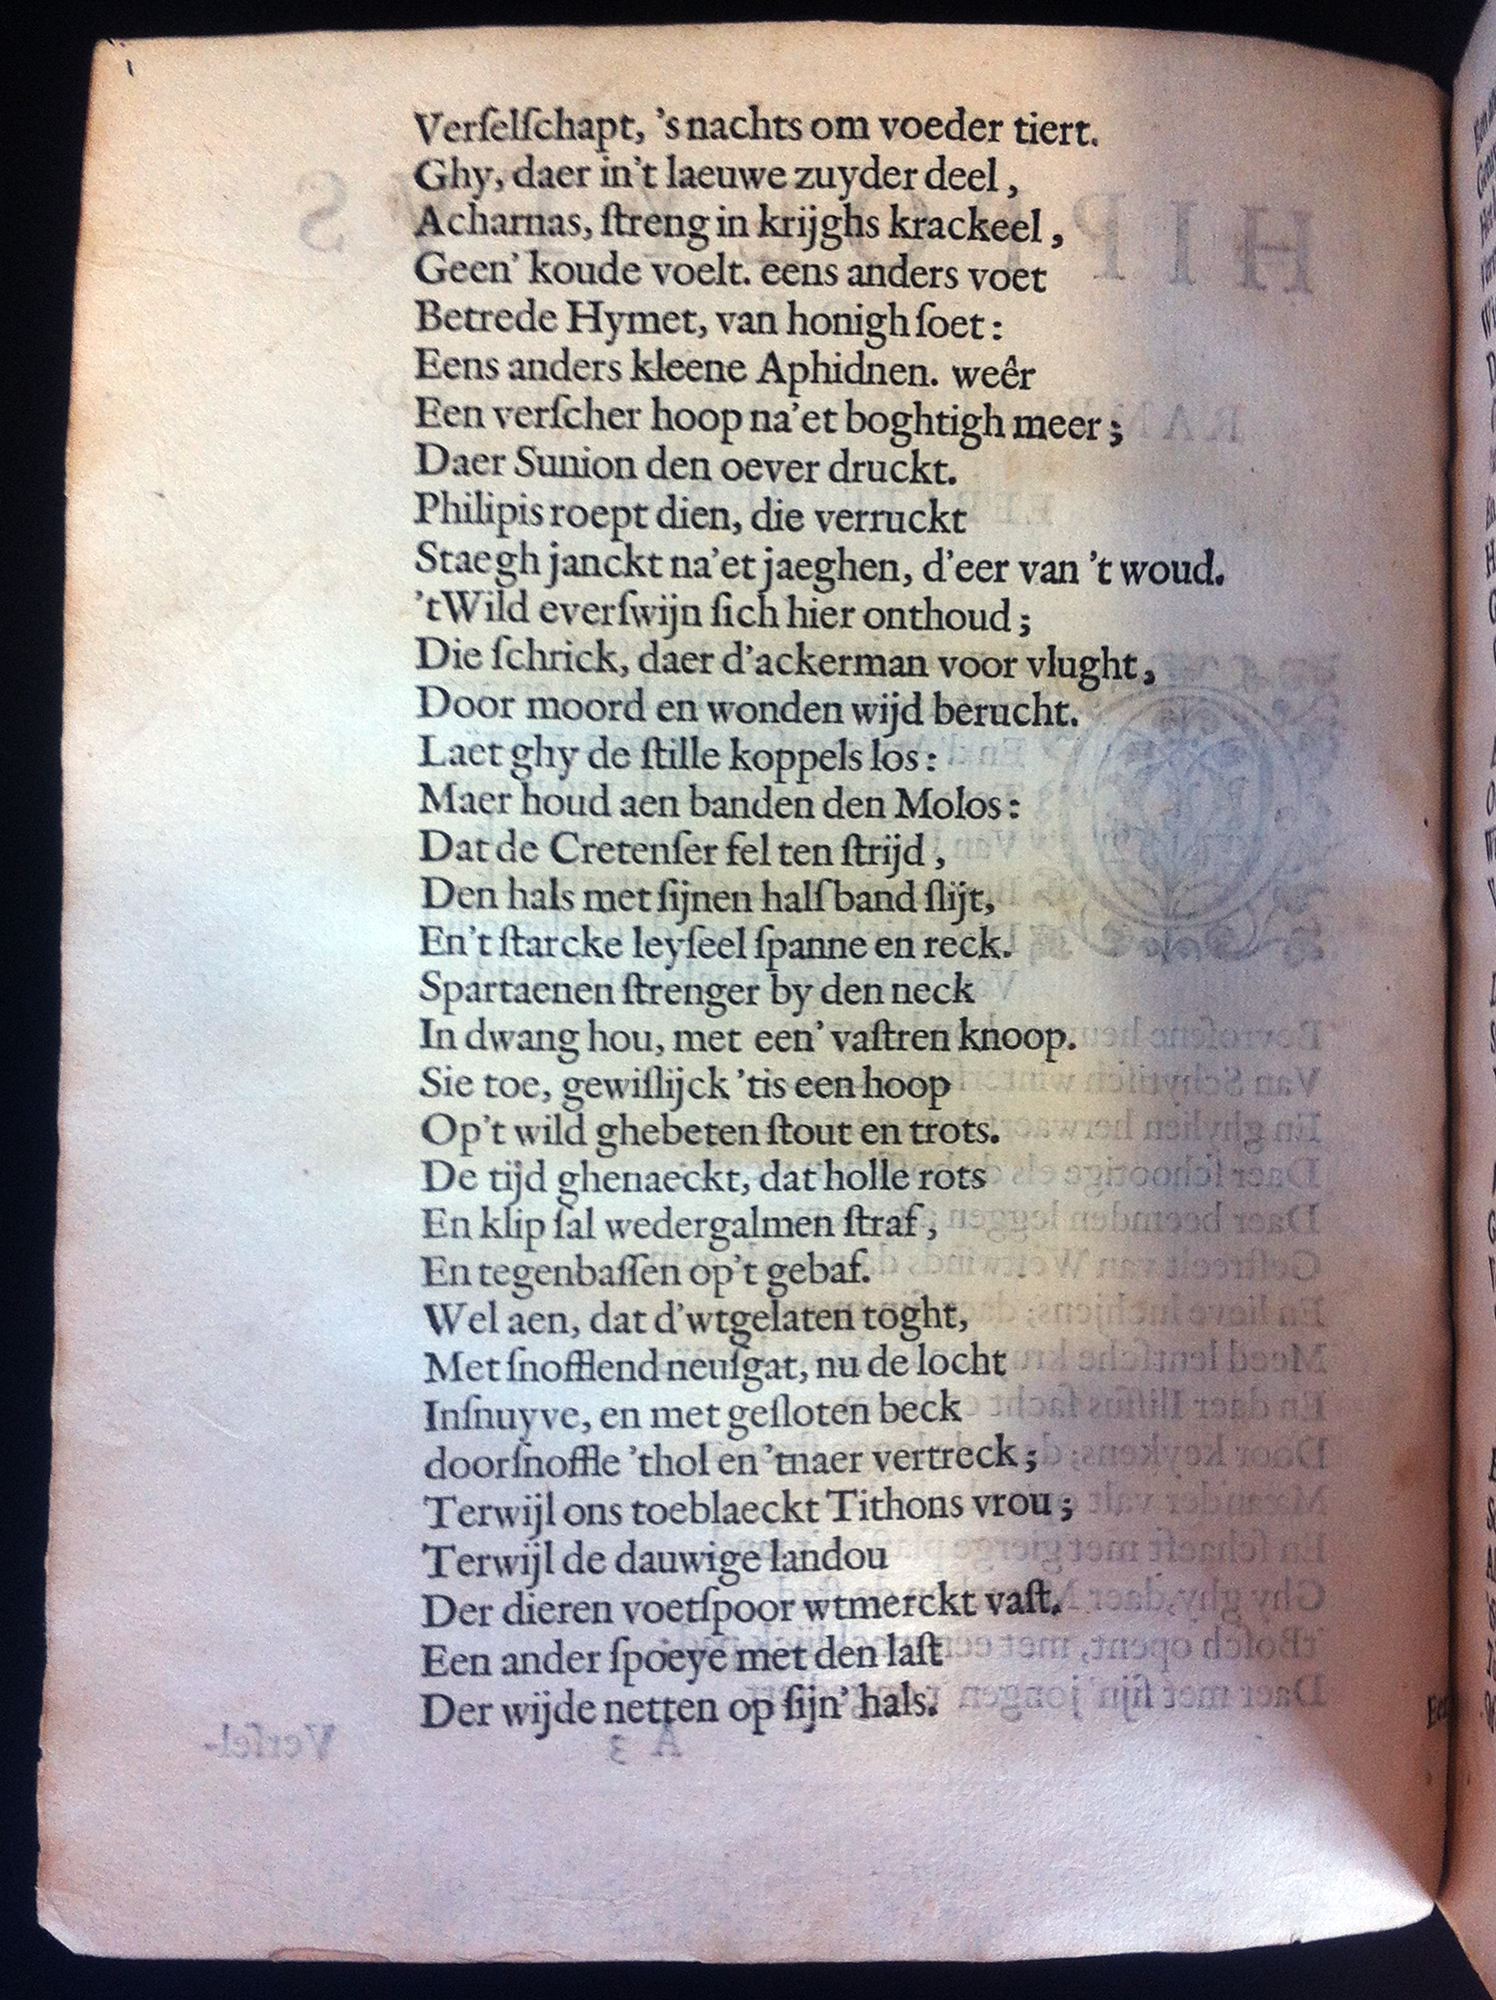 Verſelſchapt, 's nachts om voeder tiert.
Ghy, daer in't laeuwe zuyder deel,
Acharnas, ſtreng in krijghs krackeel,
Geen' koude voelt. eens anders voet
Betrede Hymet, van honigh ſoet:
Eens anders kleene Aphidnen. weêr
Een verſcher hoop na'et boghtigh meer;
Daer Sunion den oever druckt.
Philipis roept dien, die verruckt
Staegh janckt na'et jaeghen, d'eer van 't woud.
'tWild everſwijn ſich hier onthoud;
Die ſchrick, daer d'ackerman voor vlught,
Door moord en wonden wijd berucht.
Laet ghy de ſtille koppels los:
Maer houd aen banden den Molos:
Dat de Cretenſer fel ten ſtrijd,
Den hals met ſijnen halſband ſlijt,
En't ſtarcke leyſeel ſpanne en reck.
Spartaenen ſtrenger by den neck
In dwang hou, met een' vaſtren knoop.
Sie toe, gewiſlijck 'tis een hoop
Op't wild ghebeten ſtout en trots.
De tijd ghenaeckt, dat holle rots
En klip ſal wedergalmen ſtraf,
En tegenbaſſen op't gebaf.
Wel aen, dat d'wtgelaten toght,
Met ſnofflend neuſgat, nu de locht
Inſnuyve, en met geſloten beck
doorſnoffle 'thol en 'tnaer vertreck;
Terwijl ons toeblaeckt Tithons vrou;
Terwijl de dauwige landou
Der dieren voetſpoor wtmerckt vaſt.
Een ander ſpoeye met den laſt
Der wijde netten op ſijn' hals.